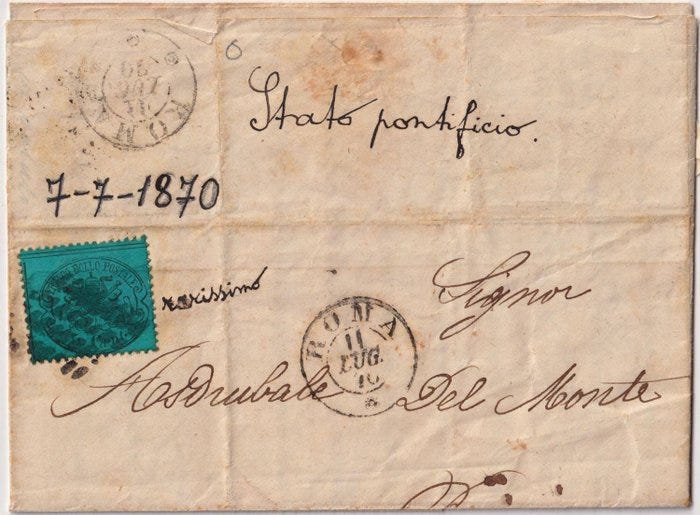 ROMA
11
LUG
70
Stato pontificio.
7-7-1870
FRANCO BOLLO POSTALE
rarissimo
Signor
ROMA
11
LUG.
70
Asdrubale Del Monte